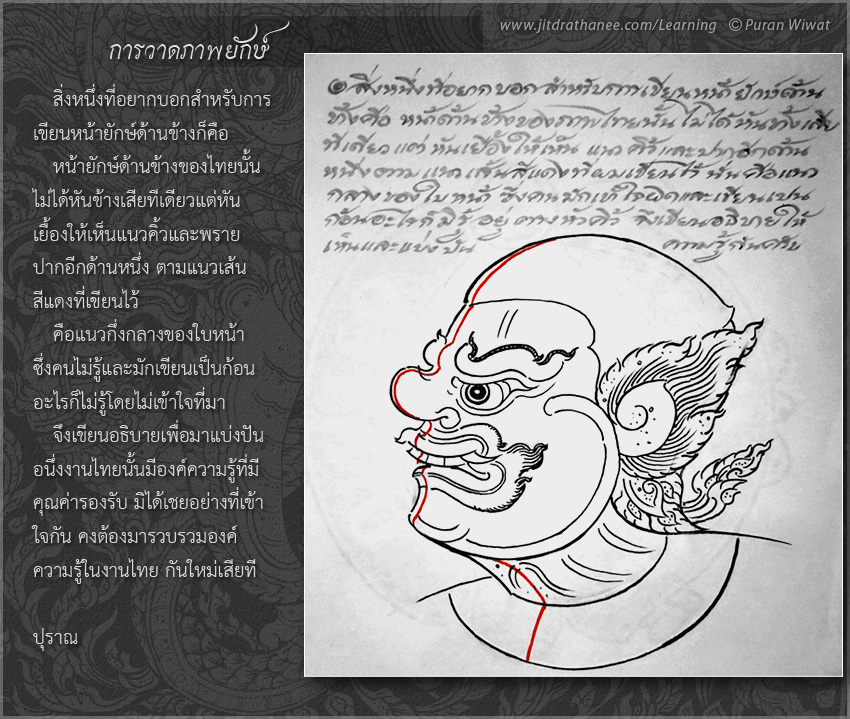 www.jitdrathanee.com/Learning ©Puran Wiwat
การวาดภาพยักษ์
สิ่งหนึ่งที่อยากบอกสำหรับการ
เขียนหน้ายักษ์ด้านข้างก็คือ
หน้ายักษ์ด้านข้างของไทยนั้น
ไม่ได้หันข้างเสียทีเดียวแต่หัน
เยื้องให้เห็นแนวคิ้วและพราย
ปากอีกด้านหนึ่ง ตามแนวเส้น
สีแดงที่เขียนไว้
คือแนวกึ่งกลางของใบหน้า
ซึ่งคนไม่รู้และมักเขียนเป็นก้อน
อะไรก็ไม่รู้โดยไม่เข้าใจที่มา
จึงเขียนอธิบายเพื่อมาแบ่งปัน
อนึ่งงานไทยนั้นมีองค์ความรู้ที่มี
คุณค่ารองรับ มิได้เชยอย่างที่เข้า
ใจกัน คงต้องมารวบรวมองค์
ความรู้ในงานไทย กันใหม่เสียที
ปุราณ
๑ สิ่งหนึ่งที่อยากบอก สำหรับการเขียนหน้ายักษ์ด้าน
ข้างคือ หน้าด้านข้างของภาพไทยนั้น ไม่ได้หันข้างเสีย
ทีเดียว แต่ หันเยื้องให้เห็น แนวคิ้วและปากด้าน
หนึ่งตามแนวเส้นสีแดงที่ผมเขียนไว้ นั่นคือแนว
กลางของใบหน้า ซึ่งคนมักเข้าใจผิดและเขียนเป็น
ก้อนอะไรก็มิรู้ อยู่ตามหัวคิ้ว จึงเขียนอธิบายให้
เห็นและแบ่งปัน ความรู้กันครับ